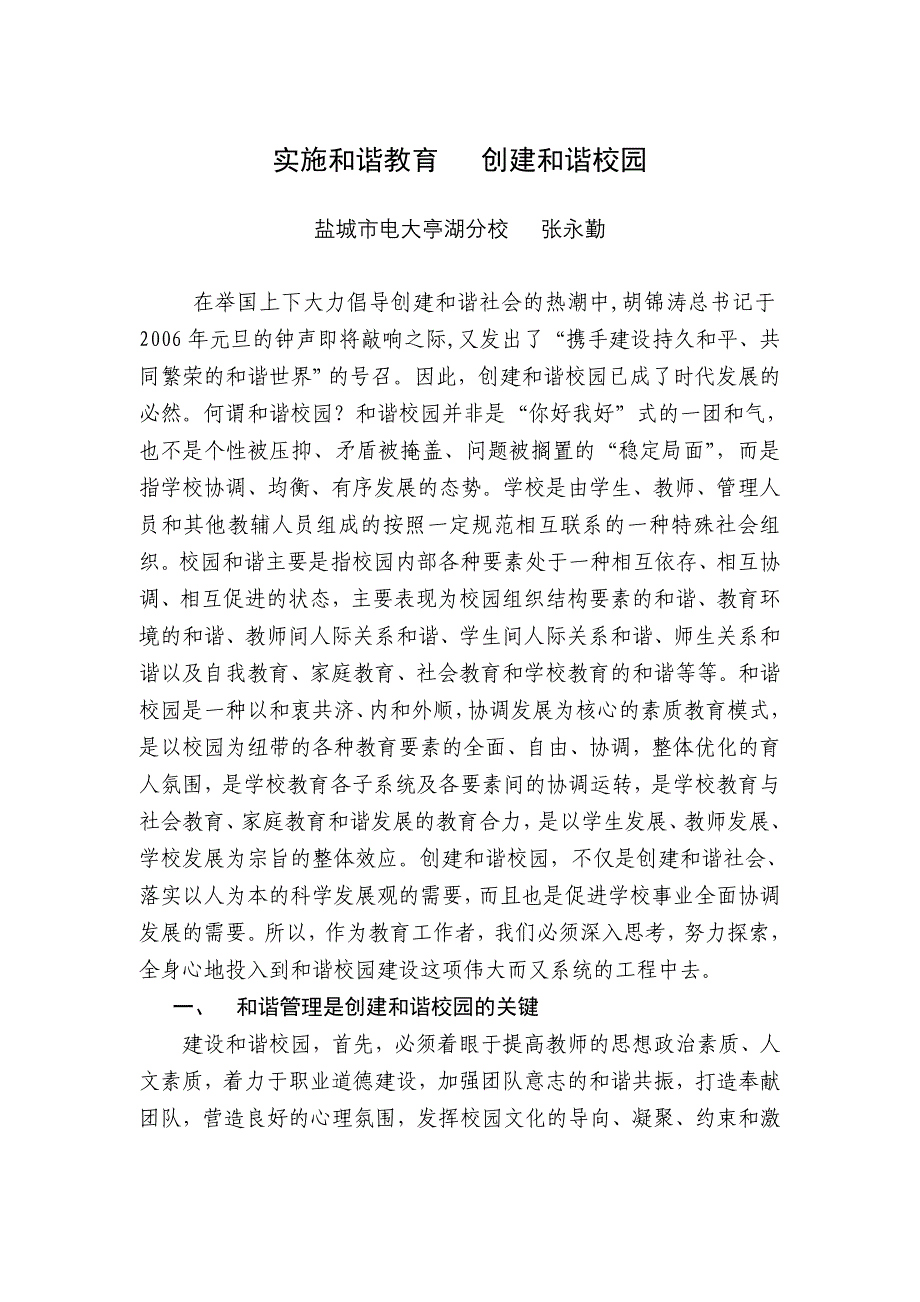 实施和谐教育　　创建和谐校园
盐城市电大亭湖分校　　张永勤
在举国上下大力倡导创建和谐社会的热潮中,胡锦涛总书记于
2006年元旦的钟声即将敲响之际,又发出了“携手建设持久和平、共
同繁荣的和谐世界”的号召。因此，创建和谐校园已成了时代发展的
必然。何谓和谐校园？和谐校园并非是“你好我好”式的一团和气，
也不是个性被压抑、矛盾被掩盖、问题被搁置的“稳定局面”，而是
指学校协调、均衡、有序发展的态势。学校是由学生、教师、管理人
员和其他教辅人员组成的按照一定规范相互联系的一种特殊社会组
织。校园和谐主要是指校园内部各种要素处于一种相互依存、相互协
调、相互促进的状态，主要表现为校园组织结构要素的和谐、教育环
境的和谐、教师间人际关系和谐、学生间人际关系和谐、师生关系和
谐以及自我教育、家庭教育、社会教育和学校教育的和谐等等。和谐
校园是一种以和衷共济、内和外顺，协调发展为核心的素质教育模式，
是以校园为纽带的各种教育要素的全面、自由、协调，整体优化的育
人氛围，是学校教育各子系统及各要素间的协调运转，是学校教育与
社会教育、家庭教育和谐发展的教育合力，是以学生发展、教师发展、
学校发展为宗旨的整体效应。创建和谐校园，不仅是创建和谐社会、
落实以人为本的科学发展观的需要，而且也是促进学校事业全面协调
发展的需要。所以，作为教育工作者，我们必须深入思考，努力探索，
全身心地投入到和谐校园建设这项伟大而又系统的工程中去。
一、　和谐管理是创建和谐校园的关键
建设和谐校园，首先，必须着眼于提高教师的思想政治素质、人
文素质，着力于职业道德建设，加强团队意志的和谐共振，打造奉献
团队，营造良好的心理氛围，发挥校园文化的导向、凝聚、约束和激